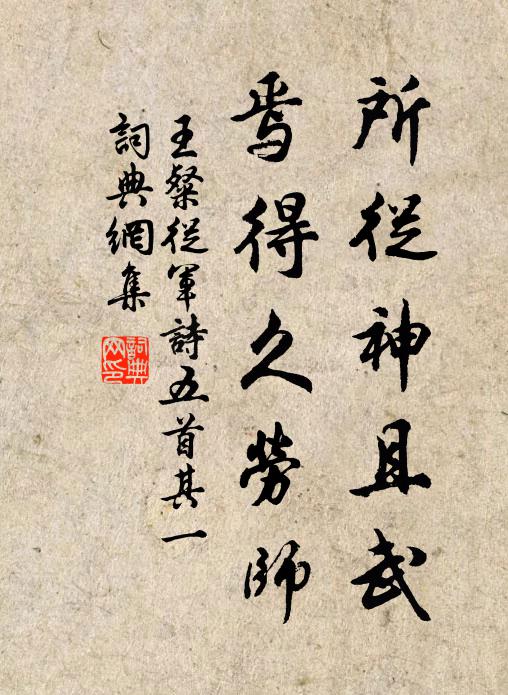 所從神且武
焉得久勞師
王粲從軍詩五首其一
詞典網集
詞典網印